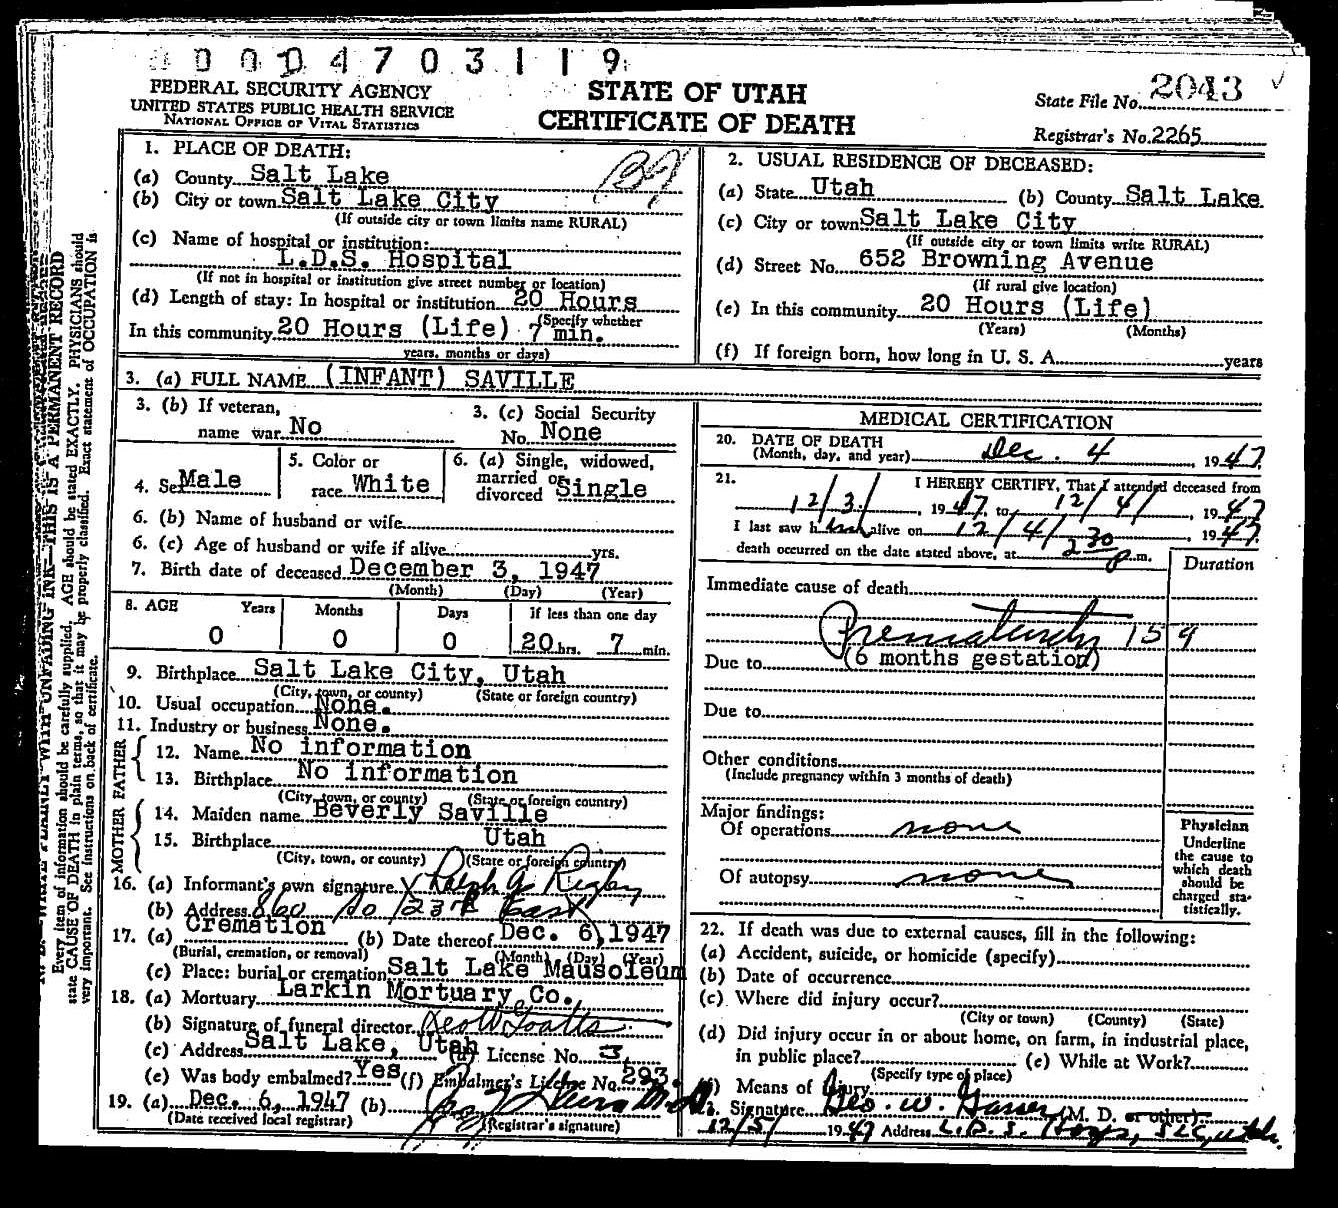 0 0 0 4 7 0 3 1 1 9
FEDERAL SECURITY AGENCY
UNITED STATES PUBLIC HEALTH SERVICE
NATIONAL OFFICE OF VITAL STATISTICS
STATE OF UTAH
CERTIFICATE OF DEATH
State File No. 2043
Registrar's No. 2265
1. PLACE OF DEATH:
(a) County Salt Lake
(b) City or town Salt Lake City
(If outside city or town limits name RURAL)
(c) Name of hospital or institution:
L.D.S. Hospital
(If not in hospital or institution give street number or location)
(d) Length of stay: In hospital or institution 20 Hours
(Specify whether
In this community 20 Hours (Life) 7 min.
years, months or days)
2. USUAL RESIDENCE OF DECEASED:
(a) State Utah (b) County Salt Lake
(c) City or town Salt Lake City
(If outside city or town limits write RURAL)
(d) Street No. 652 Browning Avenue
(If rural give location)
(e) In this community 20 Hours (Life)
(Years) (Months)
(f) If foreign born, how long in U. S. A. years
3. (a) FULL NAME (INFANT) SAVILLE
3. (b) If veteran,
name war No
3. (c) Social Security
No. None
4. Sex Male
5. Color or
race White
6. (a) Single, widowed,
married or
divorced Single
6. (b) Name of husband or wife
6. (c) Age of husband or wife if alive yrs.
7. Birth date of deceased December 3, 1947
(Month) (Day) (Year)
8. AGE Years Months Days If less than one day
0 0 0 20 hrs. 7 min.
9. Birthplace Salt Lake City, Utah
(City, town, or county) (State or foreign country)
10. Usual occupation None.
11. Industry or business None.
FATHER
12. Name No information
13. Birthplace No information
(City, town, or county) (State or foreign country)
MOTHER
14. Maiden name Beverly Saville
15. Birthplace Utah
(City, town, or county) (State or foreign country)
16. (a) Informant's own signature X Ralph G Rigby
(b) Address 860 So 1237 East
17. (a) Cremation (b) Date thereof Dec. 6, 1947
(Burial, cremation, or removal) (Month) (Day) (Year)
(c) Place: burial or cremation Salt Lake Mausoleum
18. (a) Mortuary Larkin Mortuary Co.,
(b) Signature of funeral director
(c) Address Salt Lake, Utah (d) License No. 3,
(e) Was body embalmed? Yes (f) Embalmer's License No. 293.
19. (a) Dec. 6, 1947 (b)
(Date received local registrar) (Registrar's signature)
MEDICAL CERTIFICATION
20. DATE OF DEATH
(Month, day, and year) Dec. 4, 1947
21. I HEREBY CERTIFY, That I attended deceased from
12/3/, 1947, to 12/4/, 1947
I last saw him alive on 12/4/, 1947.
death occurred on the date stated above, at 2 30 p.m.
Duration
Immediate cause of death
Prematurity 159
Due to (6 months gestation)
Due to
Other conditions
(Include pregnancy within 3 months of death)
Major findings:
Of operations none
Of autopsy none
Physician
Underline
the cause to
which death
should be
charged sta-
tistically.
22. If death was due to external causes, fill in the following:
(a) Accident, suicide, or homicide (specify)
(b) Date of occurrence
(c) Where did injury occur?
(City or town) (County) (State)
(d) Did injury occur in or about home, on farm, in industrial place,
in public place? (e) While at Work?
(Specify type of place)
(f) Means of Injury
23. Signature Geo. W. (M. D. or other)
12/5/ 1947 Address L.D.S. Hosp, SLC, Utah.
WRITE PLAINLY WITH UNFADING INK—THIS IS A PERMANENT RECORD
Every item of information should be carefully supplied. AGE should be stated EXACTLY. PHYSICIANS should
state CAUSE OF DEATH in plain terms, so that it may be properly classified. Exact statement of OCCUPATION is
very important. See instructions on back of certificate.